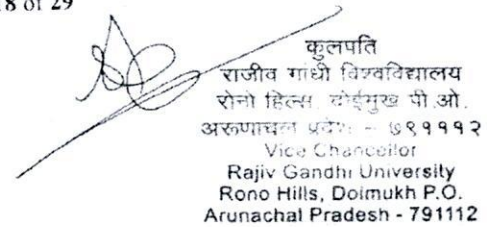 18 of 29
कुलपति
राजीव गांधी विश्वविद्यालय
रोनो हिल्स, दोईमुख पी.ओ.
अरूणाचल प्रदेश - ७९१११२
Vice Chancellor
Rajiv Gandhi University
Rono Hills, Doimukh P.O.
Arunachal Pradesh - 791112